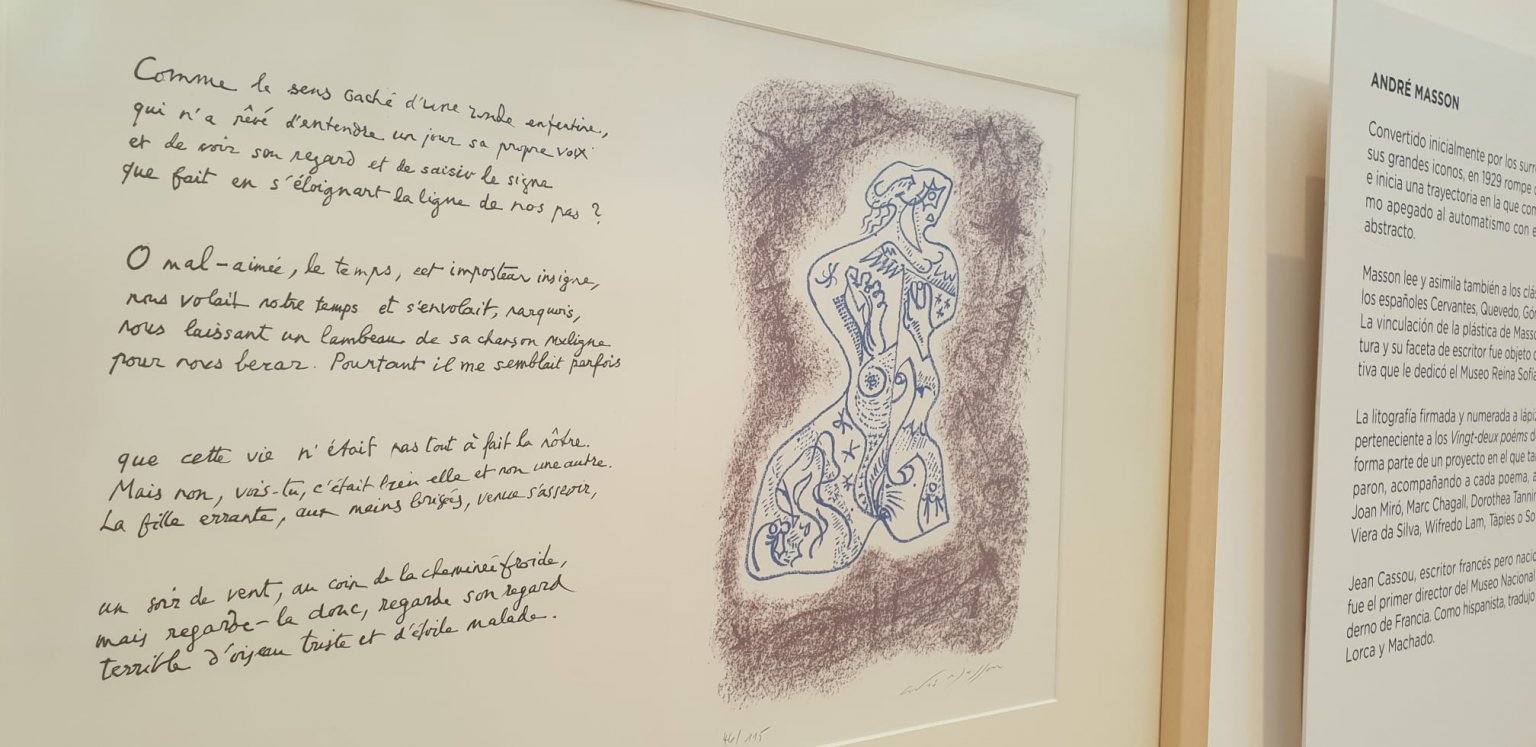 Comme le sens caché d'une ronde enfantine,
qui n'a rêvé d'entendre un jour sa propre voix
et de voir son regard et de saisir le signe
que fait en s'éloignant la ligne de nos pas ?
O mal-aimée, le temps, cet imposteur insigne,
nous volait notre temps et s'envolait, narquois,
nous laissant un lambeau de sa chanson maligne
pour nous bercer. Pourtant il me semblait parfois
que cette vie n'était pas tout à fait la nôtre.
Mais non, vois-tu, c'était bien elle et non une autre.
La fille errante, aux mains brisées, venue s'asseoir,
un soir de vent, au coin de la cheminée froide,
mais regarde-la donc, regarde son regard
terrible d'oiseau triste et d'étoile malade.
46/115
ANDRÉ MASSON
Convertido inicialmente por los surre
sus grandes iconos, en 1929 rompe
e inicia una trayectoria en la que
mo apegado al automatismo con
abstracto.
Masson lee y asimila también a los
los españoles Cervantes, Quevedo, Gón
La vinculación de la plástica de Masso
tura y su faceta de escritor fue objeto
tiva que le dedicó el Museo Reina Sofía
La litografía firmada y numerada a lápiz
perteneciente a los Vingt-deux poèms
forma parte de un proyecto en el que
paron, acompañando a cada poema,
Joan Miró, Marc Chagall, Dorothea Tannin
Viera da Silva, Wifredo Lam, Tàpies o
Jean Cassou, escritor francés pero
fue el primer director del Museo Nacional
derno de Francia. Como hispanista, tradujo
Lorca y Machado.